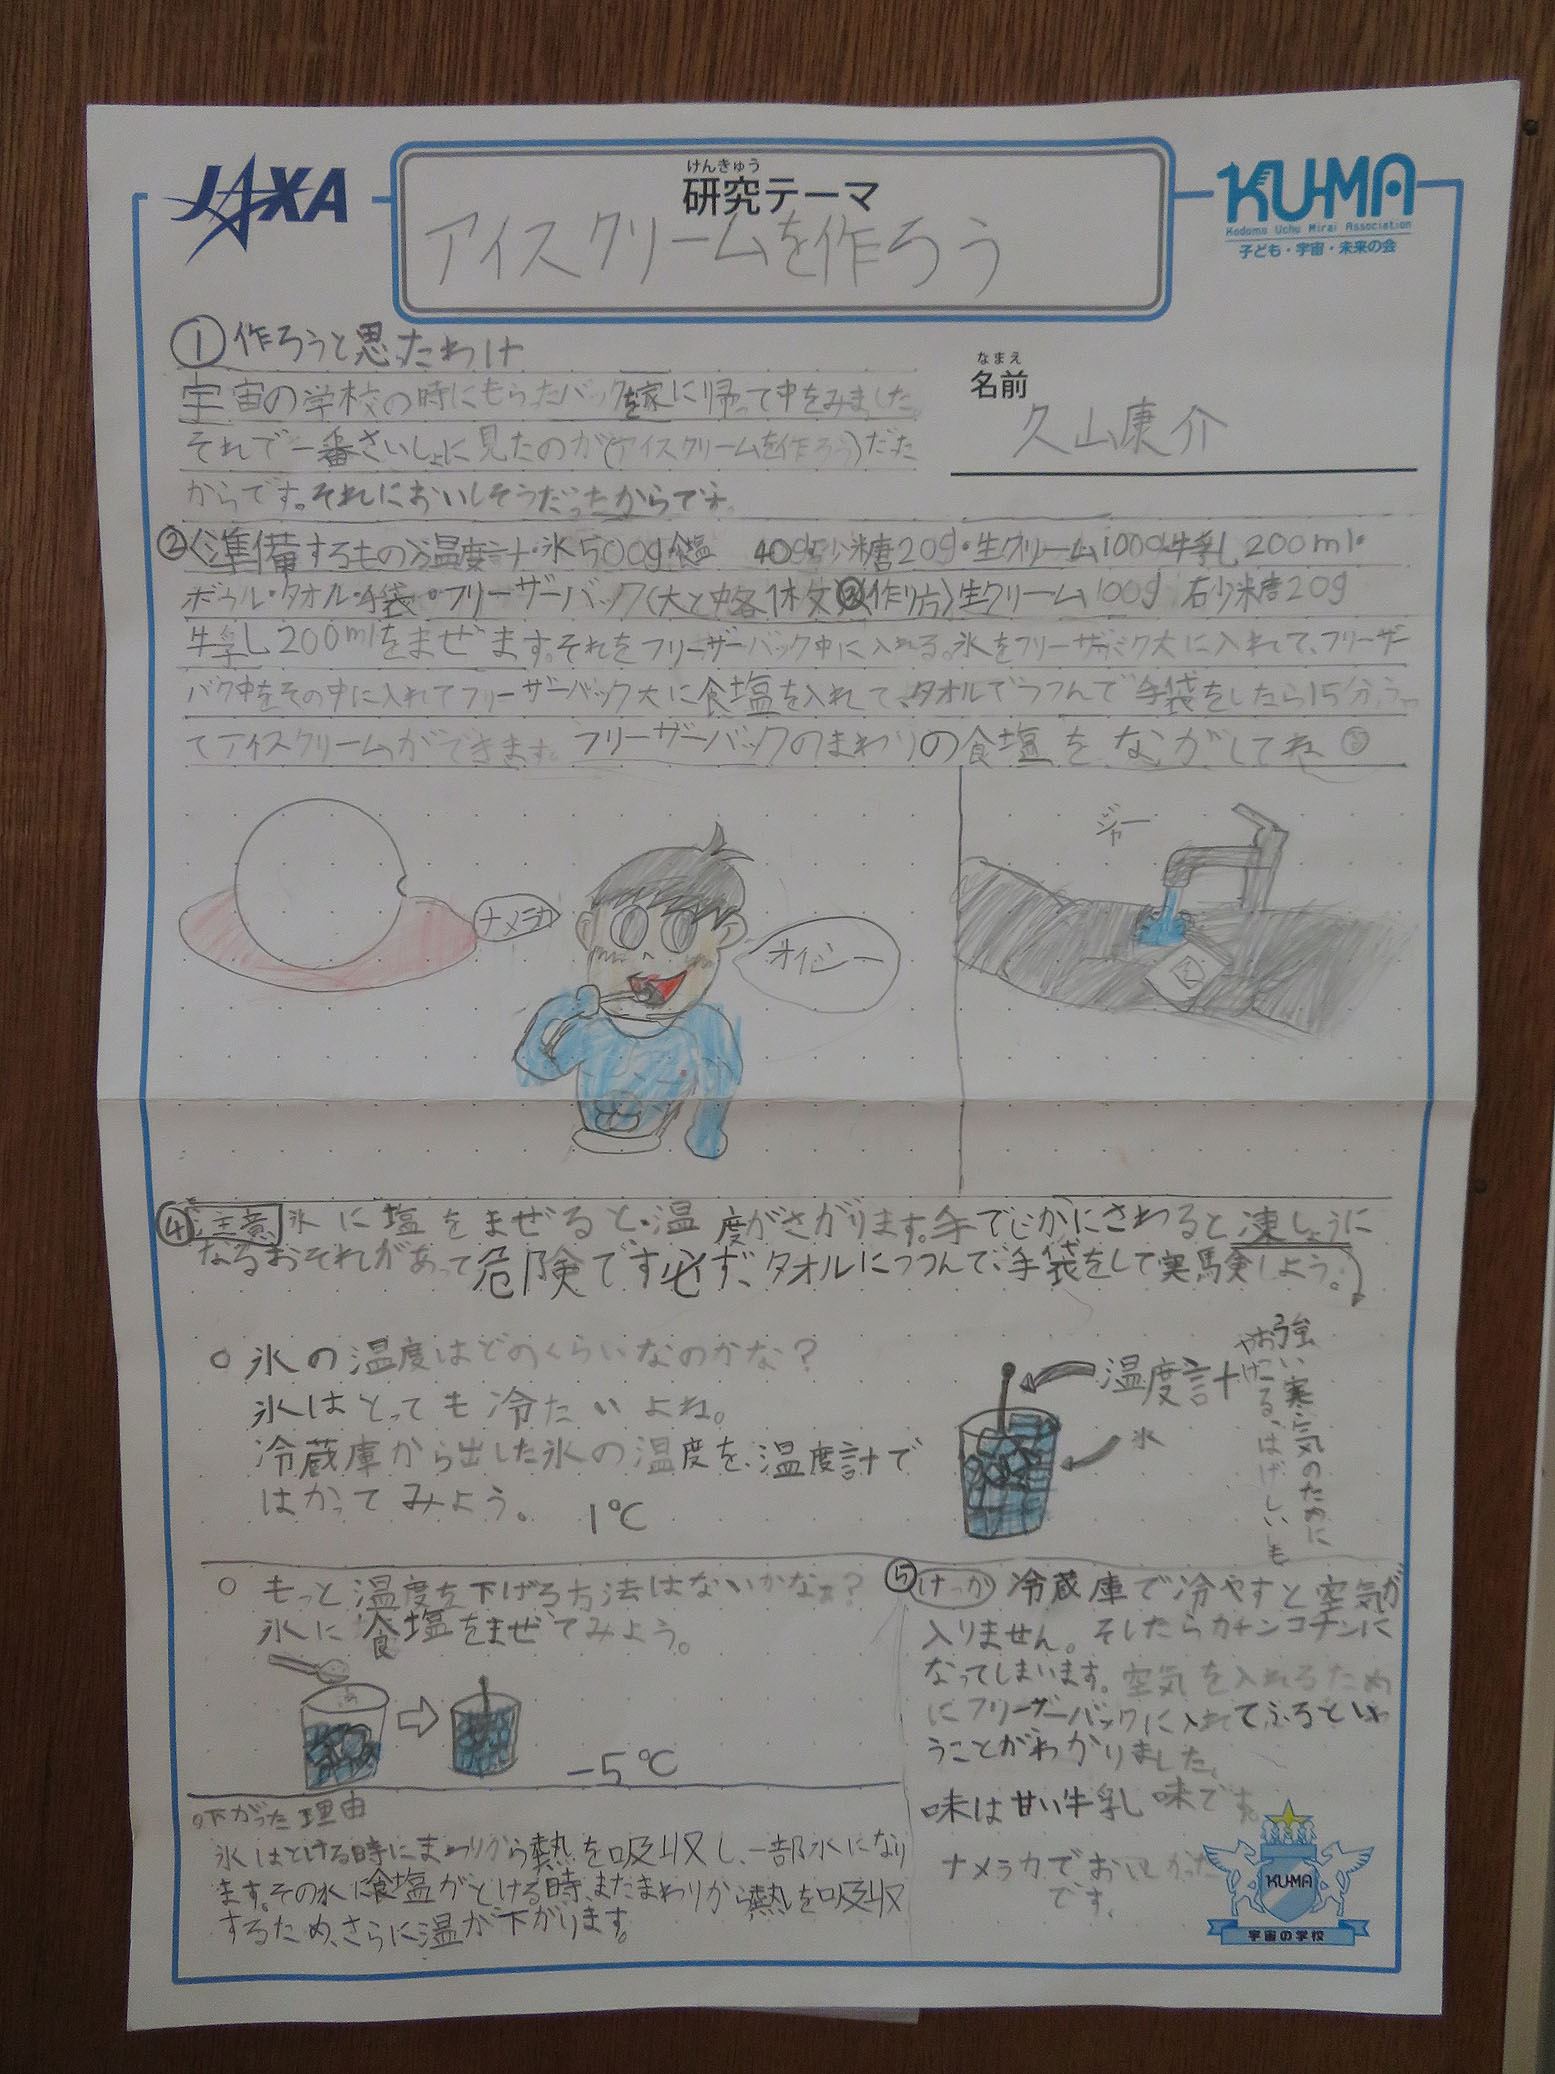 JAXA
けんきゅう
研究テーマ
アイスクリームを作ろう
KU-MA
Kodomo Uchu Mirai Association
子ども・宇宙・未来の会
①作ろうと思ったわけ
宇宙の学校の時にもらったバックを家に帰って中をみました。
それで一番さいしょに見たのが(アイスクリームを作ろう)だった
からです。それにおいしそうだったからです。
なまえ
名前
久山康介
②準備するもの 温度計・氷500g・食塩 40g・砂糖20g・生クリーム100g牛乳200ml・
ボウル・タオル・手袋・フリーザーバック(大と中各1枚)③(作り方)生クリーム100g 砂糖20g
牛乳200mlをまぜます。それをフリーザーバック中に入れる。氷をフリーザーバック大に入れて、フリーザー
バック中をその中に入れてフリーザーバック大に食塩を入れて、タオルでつつんで手袋をしたら15分ふっ
てアイスクリームができます。フリーザーバックのまわりの食塩をながしてね
ナメラカ
オイシー
ジャー
④注意 氷に塩をまぜると、温度がさがります。手でじかにさわると凍しょうに
なるおそれがあって危険です必ず、タオルにつつんで、手袋をして実験しよう。
強い寒気のために
おこる、はげしいも
やけ
○氷の温度はどのくらいなのかな?
氷はとっても冷たいよね。
冷蔵庫から出した氷の温度を、温度計で
はかってみよう。 1℃
温度計
氷
○もっと温度を下げる方法はないかなぁ?
氷に食塩をまぜてみよう。
-5℃
○下がった理由
氷はとける時にまわりから熱を吸収し、一部水になり
ます。その水に食塩がとける時、またまわりから熱を吸収
するため、さらに温が下がります。
⑤けっか 冷蔵庫で冷やすと空気が
入りません。そしたらカチンコチンに
なってしまいます。空気を入れるため
にフリーザーバックに入れてふるとい
うことがわかりました。
味は甘い牛乳 味です。
ナメラカでおいしかった
です。
KU-MA
宇宙の学校